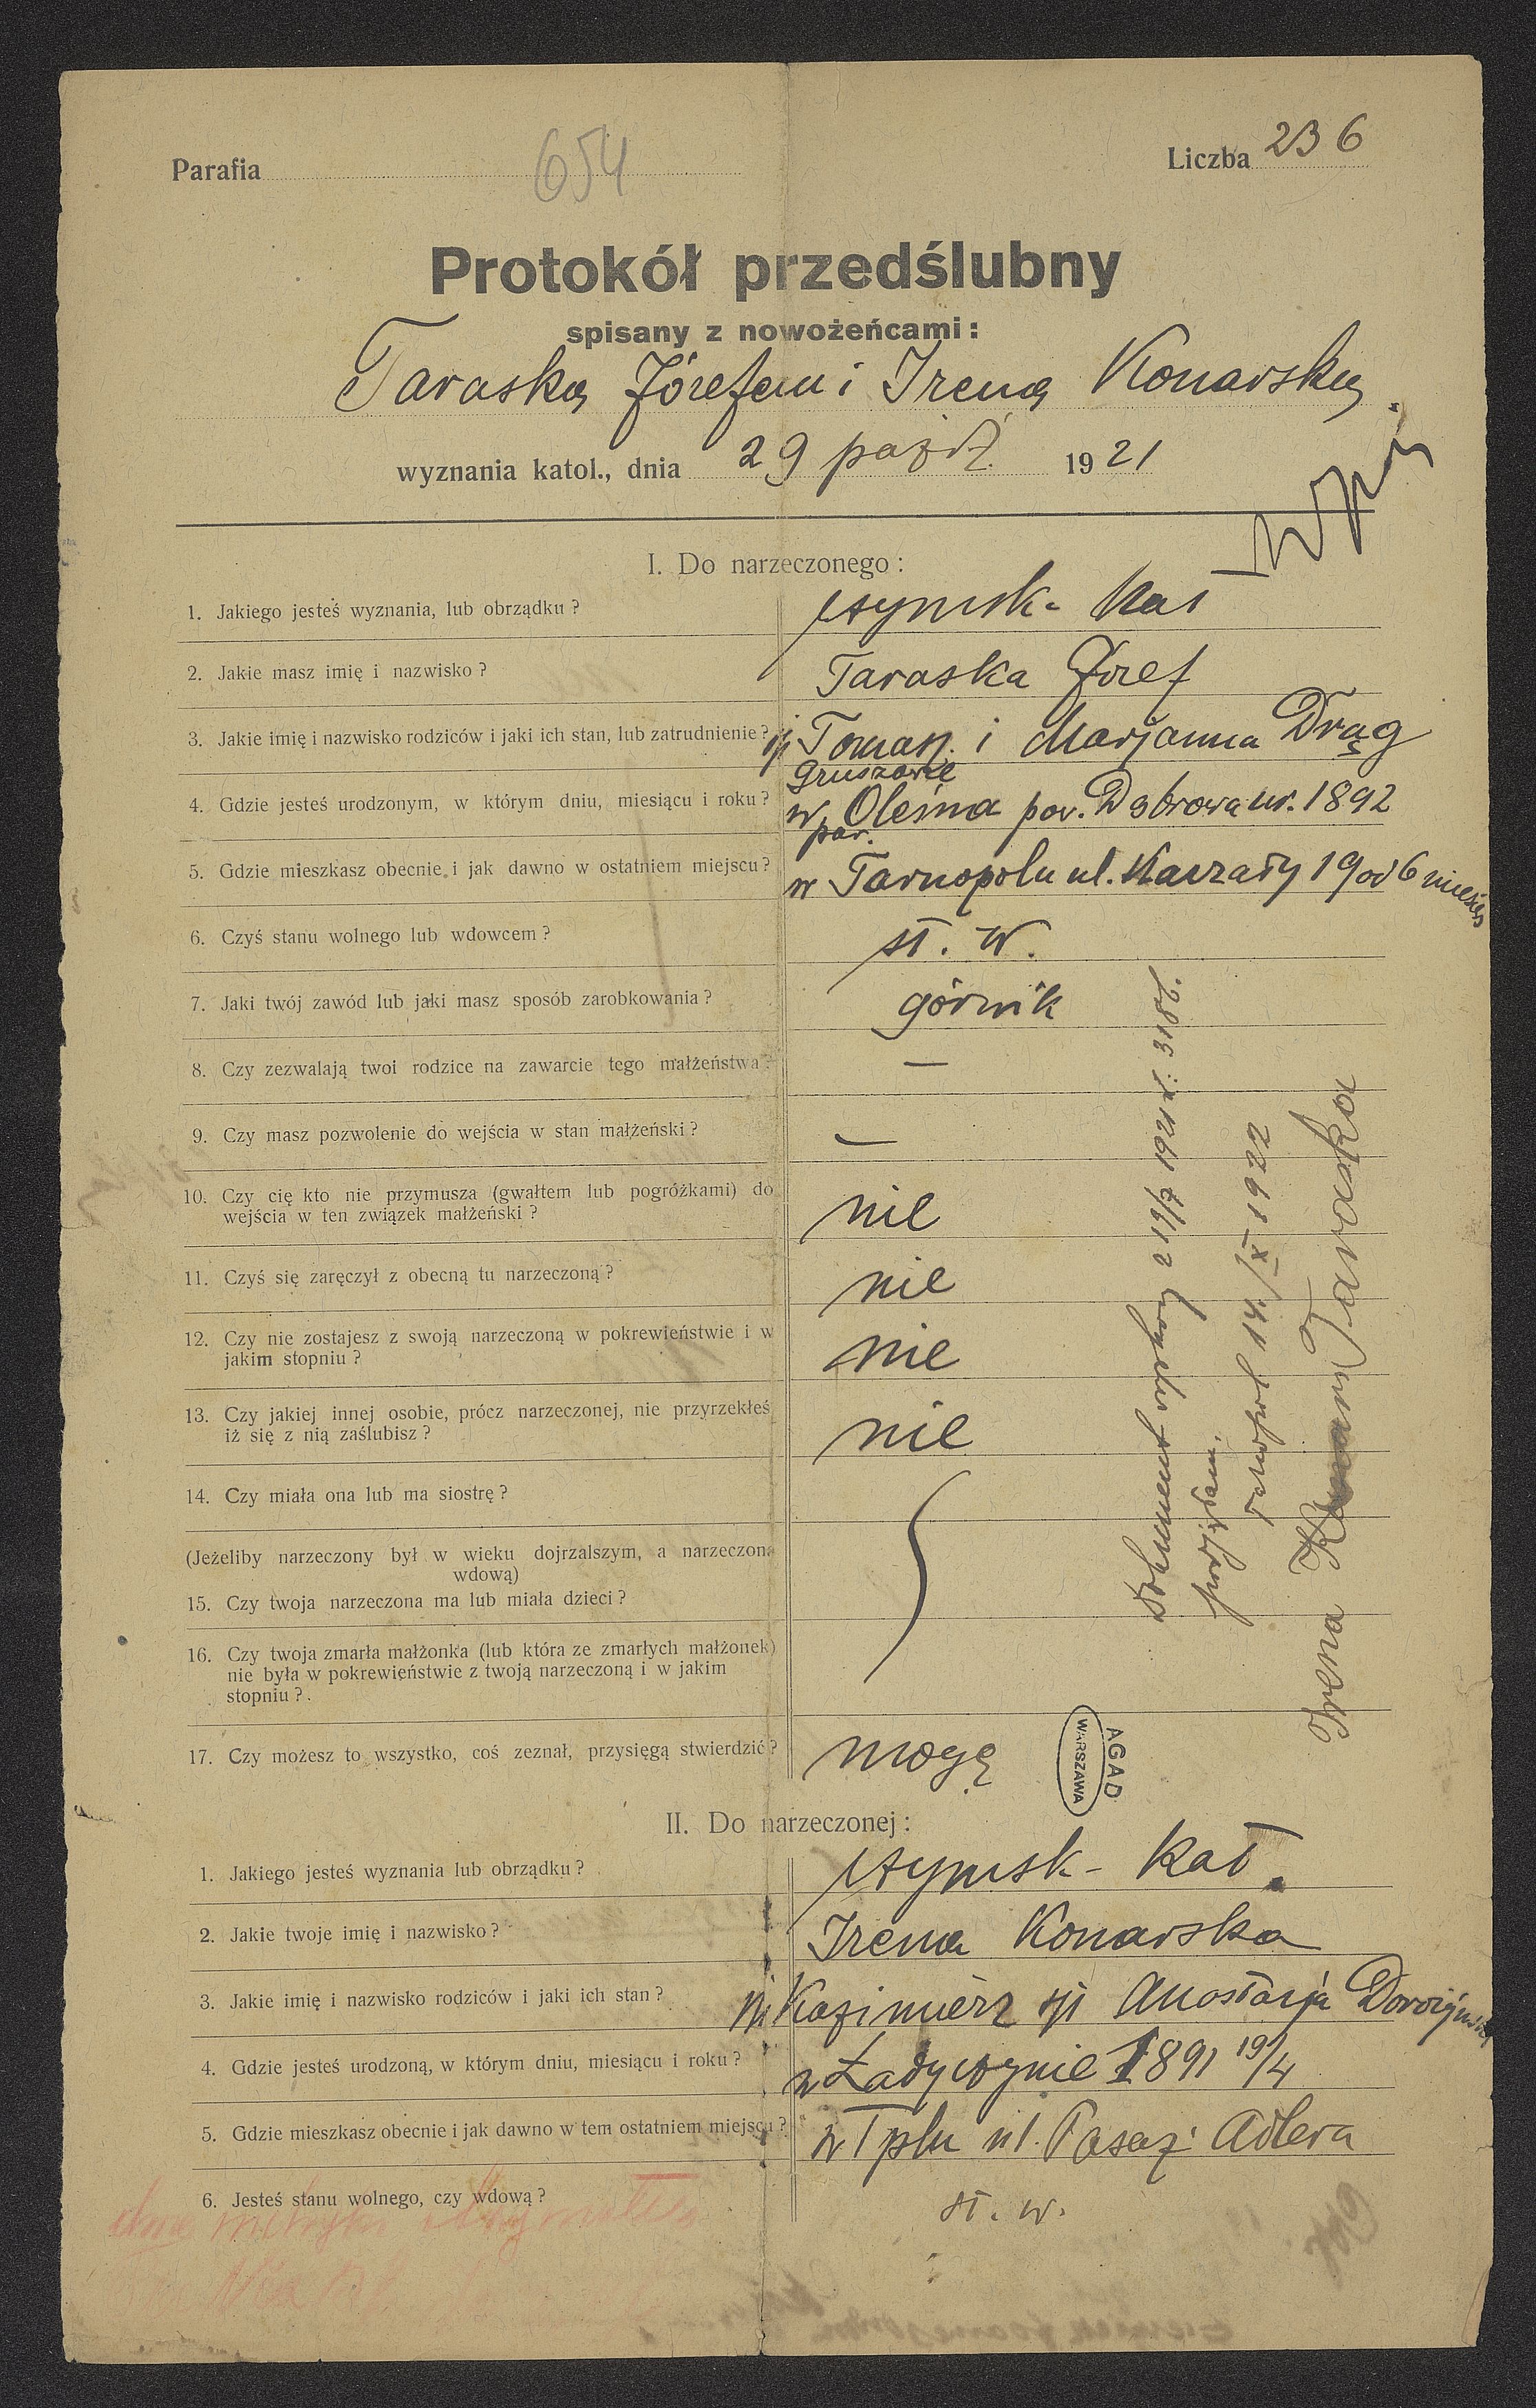 Parafia 654 Liczba 236
Protokół przedślubny
spisany z nowożeńcami:
Taraską Józefem i Ireną Konarską
wyznania katol., dnia 29 paźdź. 1921
I. Do narzeczonego:
1. Jakiego jesteś wyznania, lub obrządku? rzymsk- kat
2. Jakie masz imię i nazwisko? Taraska Józef
3. Jakie imię i nazwisko rodziców i jaki ich stan, lub zatrudnienie? Tomasz i Marjanna Drąg
Gruszowie
4. Gdzie jesteś urodzonym, w którym dniu, miesiącu i roku? w Oleśna pow. Dąbrowa ur. 1892
par.
5. Gdzie mieszkasz obecnie i jak dawno w ostatniem miejscu? w Tarnopolu ul. 19 od 6 miesięcy
6. Czyś stanu wolnego lub wdowcem? st. w.
7. Jaki twój zawód lub jaki masz sposób zarobkowania? górnik
8. Czy zezwalają twoi rodzice na zawarcie tego małżeństwa? —
9. Czy masz pozwolenie do wejścia w stan małżeński? —
10. Czy cię kto nie przymusza (gwałtem lub pogróżkami) do
wejścia w ten związek małżeński? nie
11. Czyś się zaręczył z obecną tu narzeczoną? nie
12. Czy nie zostajesz z swoją narzeczoną w pokrewieństwie i w
jakim stopniu? nie
13. Czy jakiej innej osobie, prócz narzeczonej, nie przyrzekłeś
iż się z nią zaślubisz? nie
14. Czy miała ona lub ma siostrę?
(Jeżeliby narzeczony był w wieku dojrzalszym, a narzeczona
wdową)
15. Czy twoja narzeczona ma lub miała dzieci?
16. Czy twoja zmarła małżonka (lub która ze zmarłych małżonek)
nie była w pokrewieństwie z twoją narzeczoną i w jakim
stopniu?.
17. Czy możesz to wszystko, coś zeznał, przysięgą stwierdzić? mogę
Dokument wojskowy z 19/7 1921 l: 3186.
podjęłam.
Tarnopol 14./IX 1922
Irena Taraska
AGAD
WARSZAWA
II. Do narzeczonej:
1. Jakiego jesteś wyznania lub obrządku? rzymsk- kat.
2. Jakie twoje imię i nazwisko? Irena Konarska
3. Jakie imię i nazwisko rodziców i jaki ich stan? Kazimierz Anastazja
4. Gdzie jesteś urodzoną, w którym dniu, miesiącu i roku? w Ładyczynie 1891 19/4
5. Gdzie mieszkasz obecnie i jak dawno w tem ostatniem miejscu? w Tplu ul. Pasaż Adlera
6. Jesteś stanu wolnego, czy wdową? st. w.